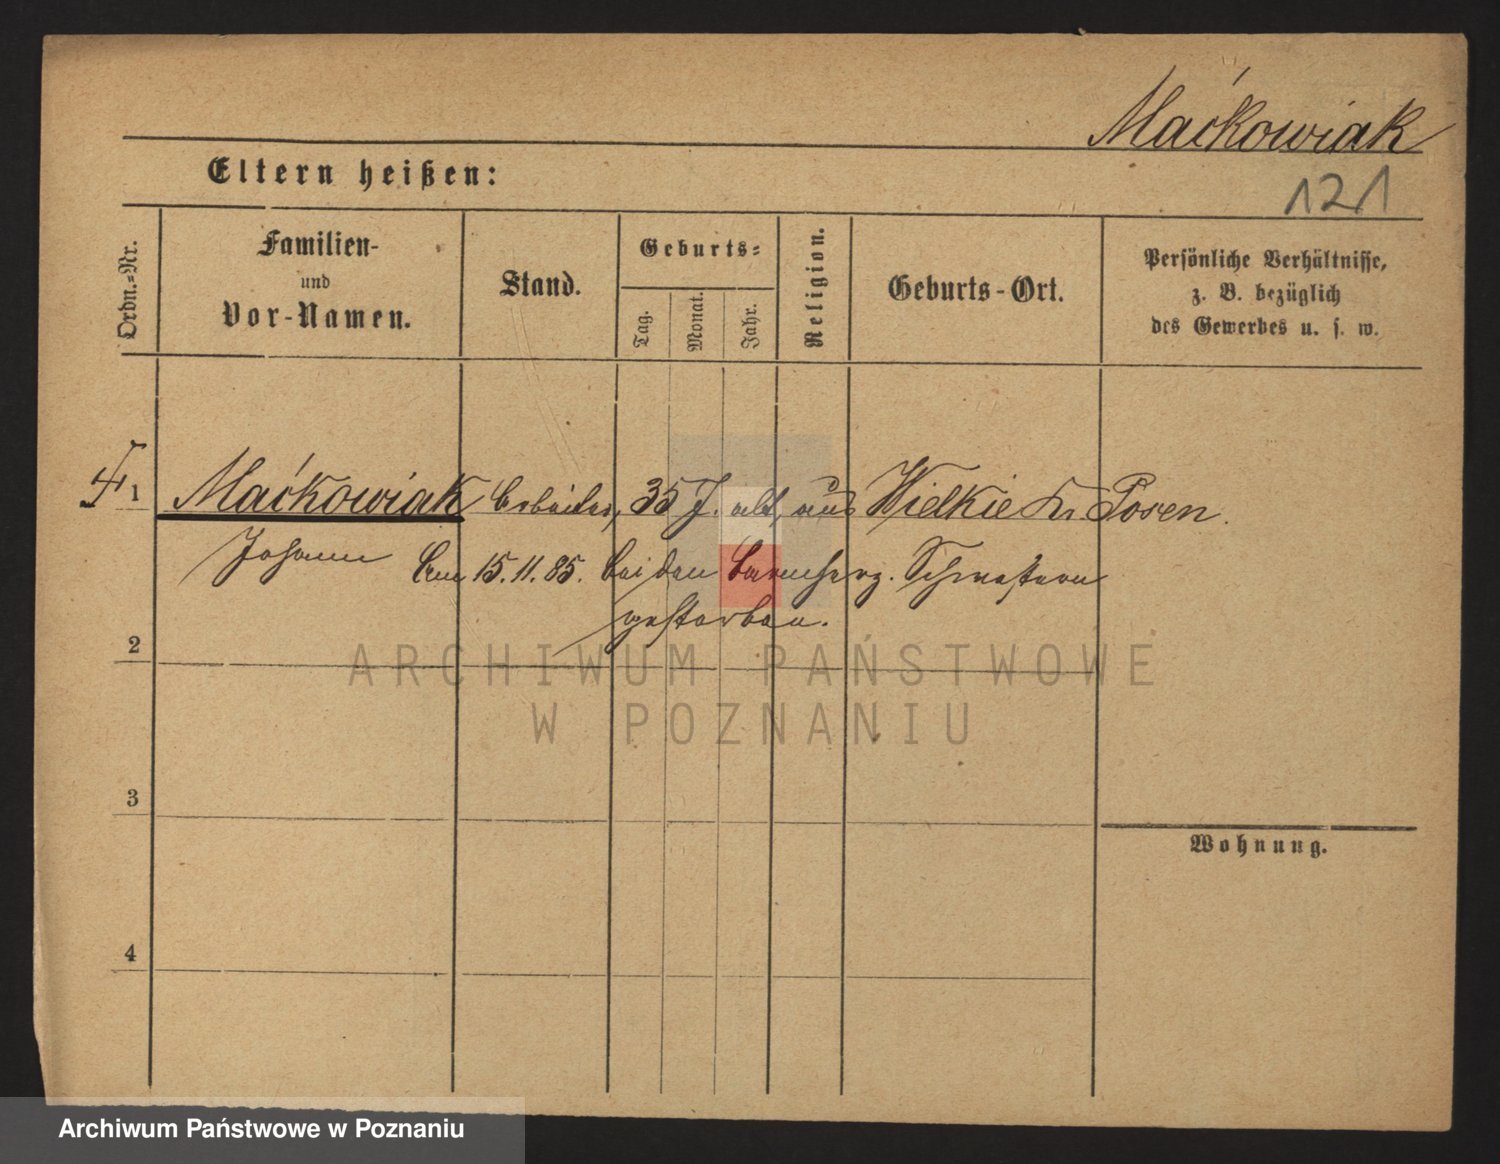 Maćkowiak
Eltern heißen:
121
Ordn.-Nr.
Familien-
und
Vor-Namen.
Stand.
Geburts-
Tag.
Monat.
Jahr.
Religion.
Geburts-Ort.
Persönliche Verhältnisse,
z. B. bezüglich
des Gewerbes u. s. w.
1 Maćkowiak Arbeiter, 35 J. alt, aus Wielkie Kr. Posen.
Johann Am 15.11.85. bei den barmherz. Schwestern
gestorben.
2
ARCHIWUM PAŃSTWOWE
W POZNANIU
3
Wohnung.
4
Archiwum Państwowe w Poznaniu